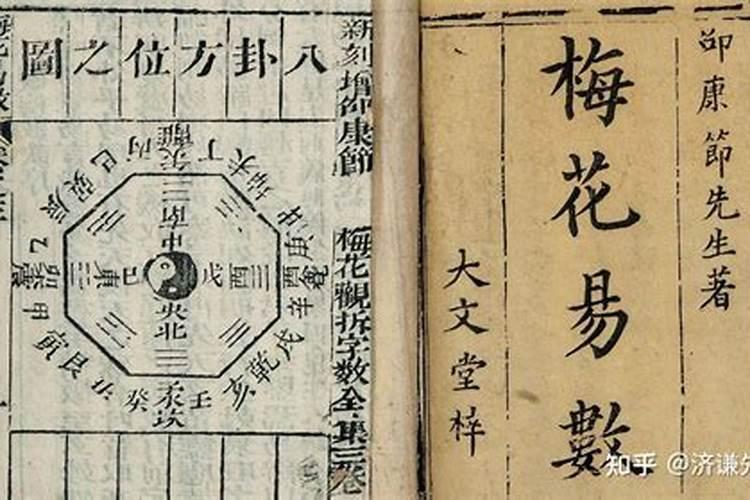 邵康節先生著
梅花易數
大文堂梓
新刻增邵康節 梅花觀拆字數全集三卷
八卦方位之圖
巳 丙 離 丁 未 坤
辰 巽
申
乙
震 卯 東 巳 戊 酉 兌
南
中
央
北
甲
辛
寅 艮 丑 癸 子 坎 壬 亥 乾 戌
知乎 @济谦先